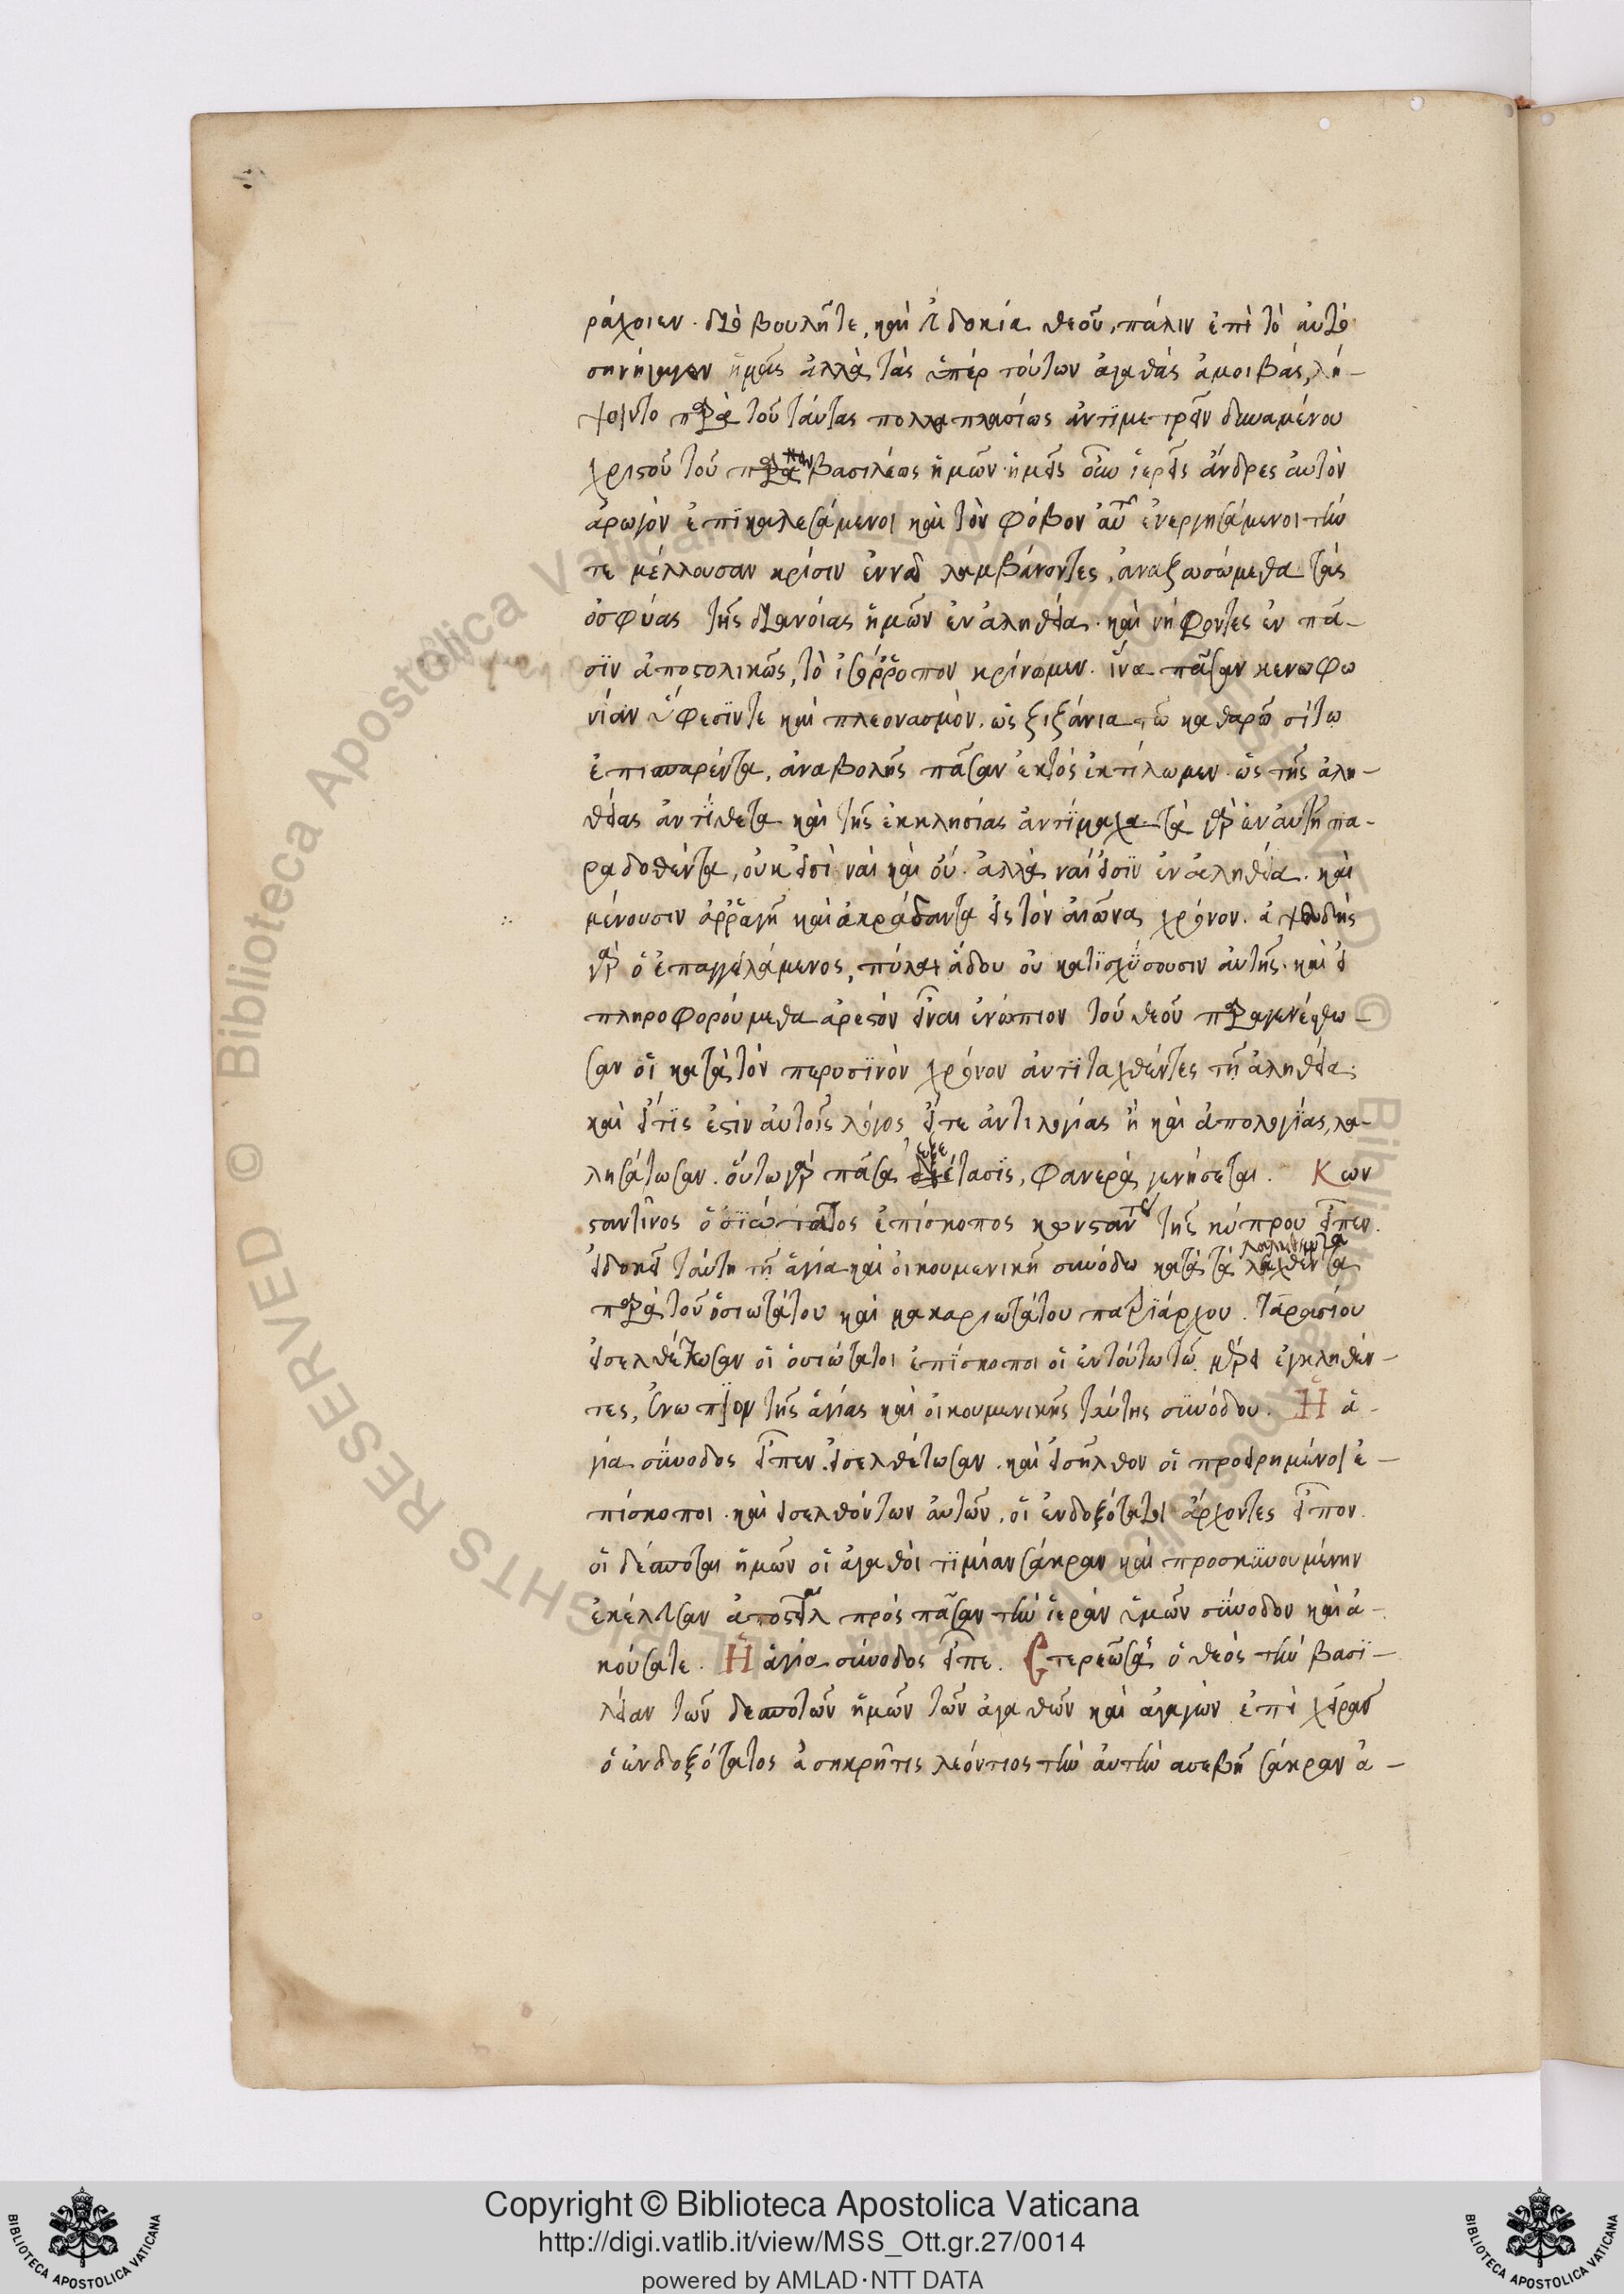 ράχοιεν. διὸ βουλῆτε, καὶ εὐδοκία θεοῦ, πάλιν ἐπὶ τὸ αὐτὸ
συνήγαγεν ἡμᾶς ἀλλὰ τὰς ὑπὲρ τούτων ἀγαθὰς ἀμοιβάς, λή-
ψοιντο παρὰ τοῦ ταύτας πολλαπλασίως ἀντϊμετρεῖν δυναμένου
χριστοῦ τοῦ βασιλέως ἡμῶν· ἡμεῖς οὖν ἱερεῖς ἄνδρες αὐτὸν
ἀρωγὸν ἐπϊκαλεσάμενοι καὶ τὸν φόβον αὐτοῦ ἐνεργησάμενοι τήν
τε μέλλουσαν κρίσιν ἐννῶ λαμβάνοντες, ἀναζωσώμεθα τὰς
ὀσφύας τῆς διανοίας ἡμῶν ἐν ἀληθεία. καὶ νήφοντες ἐν πᾶ-
σϊν ἀποστολικῶς, τὸ ἰσόρροπον κρίνωμεν. ἵνα πᾶσαν κενοφω
νίαν ὕφεσϊντε καὶ πλεονασμὸν, ὡς ζιζάνια τῶ καθαρῶ σίτω
ἐπισπαρέντα, ἀναβολῆς πᾶσαν ἐκτὸς ἐκτίλωμεν. ὡς τῆς ἀλη-
θείας ἀντϊθετα καὶ τῆς ἐκκλησίας ἀντϊμαχα τὰ γὰρ ἐν αὐτῆ πα-
ραδοθέντα, οὐκ εἰσὶ ναὶ καὶ οὔ. ἀλλὰ ναί εἰσϊν ἐν ἀληθεία. καὶ
μένουσιν ἀρραγῆ καὶ ἀκράδαντα εἰς τὸν αἰῶνας χρόνον. ἀψευδὴς
γὰρ ὁ ἐπαγγειλάμενος, πύλαι ἅδου οὐ κατϊσχϋσουσιν αὐτῆς. καὶ εἰ
πληροφορούμεθα ἀρεστὸν εἶναι ἐνώπιον τοῦ θεοῦ παραγενέσθω-
σαν οἱ κατὰ τὸν περυσϊνὸν χρόνον ἀντϊταχθέντες τῆ ἀληθεία.
καὶ εἴτϊς ἐστὶν αὐτοῖς λόγος εἴτε ἀντιλογίας ἢ καὶ ἀπολογϊας, λα-
λησάτωσαν. οὕτω γὰρ πᾶσα ἐξέτασϊς, φανερὰ γενήσεται. Κων
σταντῖνος ὁ ὁσϊώτατος ἐπίσκοπος κωνσταντεί τῆς κύπρου εἶπεν.
εἰ δοκεῖ ταύτη τῆ ἁγία καὶ οἰκουμενικῆ συνόδω κατὰ τὰ λαληθέντα λαχθέντα
παρὰ τοῦ ὁσιωτάτου καὶ μακαριωτάτου πατρϊάρχου. ταρασίου
εἰσελθέτωσαν οἱ ὁσιώτατοι ἐπϊσκοποι οἱ ἐν τούτω τῶ μέρει ἐγκληθέν-
τες, ἐνώπϊον τῆς ἁγίας καὶ οἰκουμενικῆς ταύτης συνόδου. Ἡ ἁ-
γία σύνοδος εἶπεν. εἰσελθέτωσαν. καὶ εἰσῆλθον οἱ προειρημένοι ἐ-
πίσκοποι. καὶ εἰσελθόντων αὐτῶν, οἱ ἐνδοξότατοι ἄρχοντες εἶπον.
οἱ δεσπόται ἡμῶν οἱ ἀγαθοὶ τϊμίαν σάκραν καὶ προσκυνουμένην
ἐκέλευσαν ἀποσταλ πρὸς πᾶσαν τὴν ἱερὰν ὑμῶν σύνοδον καὶ ἀ-
κούσατε. Ἡ ἁγία σύνοδος εἶπε. Στερεώσαι ὁ θεὸς τὴν βασϊ-
λείαν τῶν δεσποτῶν ἡμῶν τῶν ἀγαθῶν καὶ ἀγαγὼν ἐπὶ χεῖρας
ὁ ἐνδοξότατος ἀσηκρῆτις λεόντιος τὴν αὐτὴν ευσεβῆ σάκραν ἀ-
Copyright © Biblioteca Apostolica Vaticana
http://digi.vatlib.it/view/MSS_Ott.gr.27/0014
powered by AMLAD·NTT DATA
BIBLIOTECA APOSTOLICA VATICANA
BIBLIOTECA APOSTOLICA VATICANA
© Biblioteca Apostolica Vaticana ALL RIGHTS RESERVED